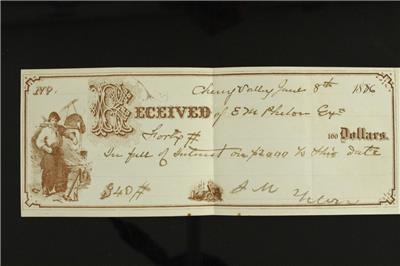 No.
Cherry Valley June 8th 1876
Received of E M Phelon Esqr
Forty # 100 Dollars.
In full of Interest on $2000 to this date
$40 #